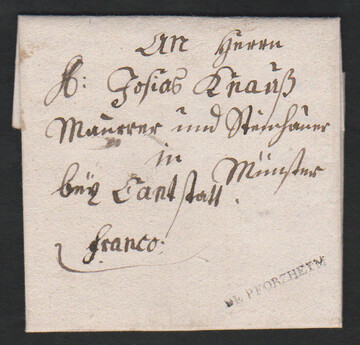 An Herrn
H: Josias Knauß
Maurer und Steinhauer
in
Münster
beÿ Cantstatt.
franco:
DE PFORZHEIM